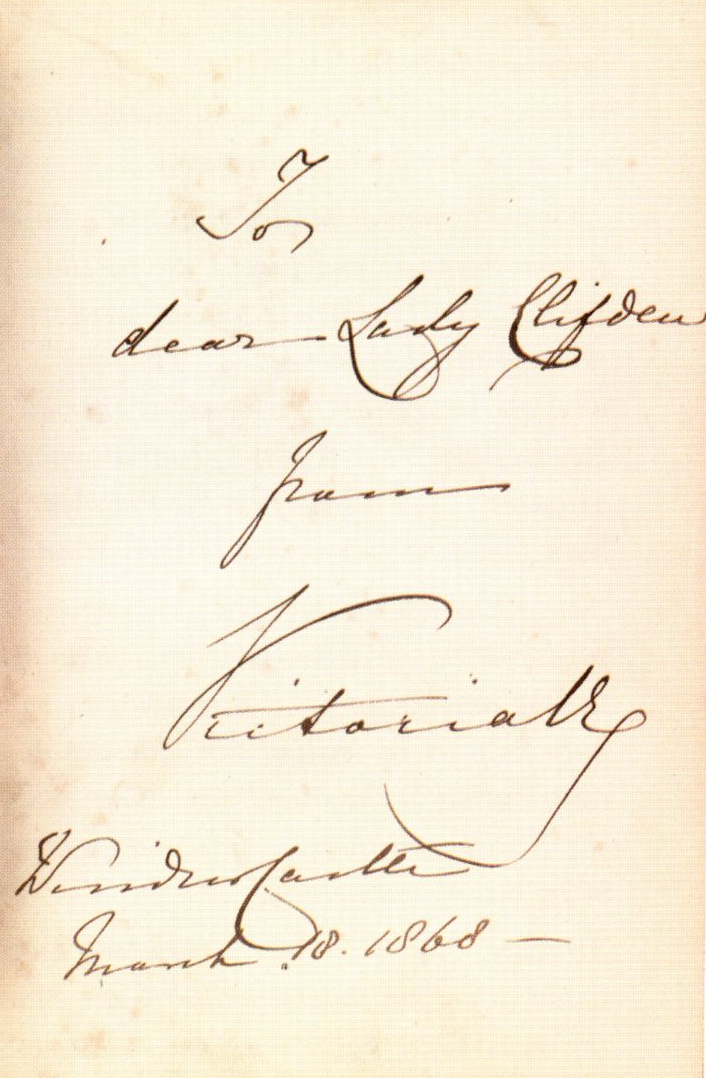 To
dear Lady Clifden
from
Victoria R
Windsor Castle
March 18. 1868 —